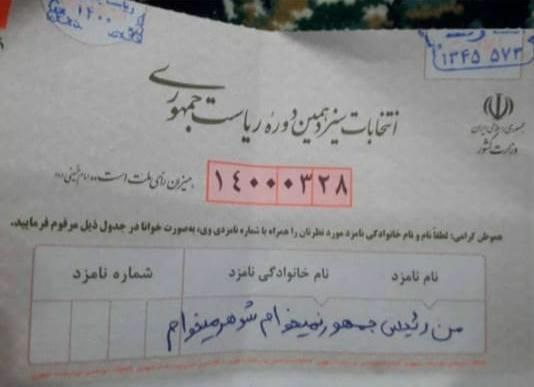 ۱۴۰۰
۱۳۴۵ ۵۷۳
انتخابات سیزدهمین دوره ریاست جمهوری
جمهوری اسلامی ایران
وزارت کشور
۱۴۰۰۰۳۲۸
میزان رأی ملت است «امام خمینی (ره)»
هموطن گرامی: لطفاً نام و نام خانوادگی نامزد مورد نظرتان را همراه با شماره نامزدی وی، به‌صورت خوانا در جدول ذیل مرقوم فرمایید.
نام نامزد نام خانوادگی نامزد شماره نامزد
من رئیس جمهور نمیخوام شوهر میخوام